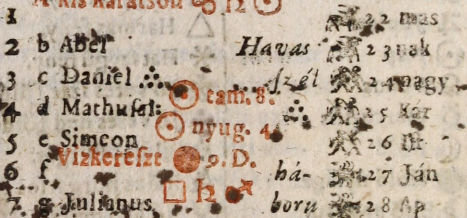 A kis karátson ☍ ♄ ☉
1 △ 22 más
2 b Abel Havas 23 nak
3 c Daniel szél 24 nagy
☉ tam. 8.
4 d Mathusal: 25 kár
☉ nyug. 4.
5 e Simeon 26
6 f Vizkereszt 9. D. há- 27 Ján
□ ♄ ♂
7 g Julianus boru 28 Ap